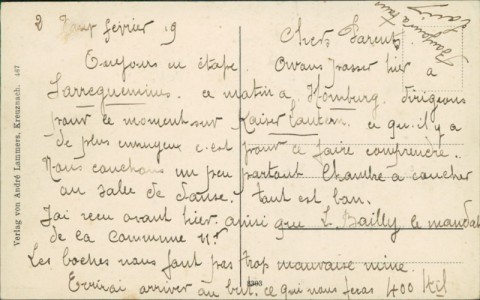 2 février 19
Chers Parents.
Toujours en étape. Avons passer hier a
Sarreguemines. ce matin a Homburg. dirigeons
pour ce moment sur Kaiserlautern. ce qu'il y a
de plus ennuyeux c'est pour ce faire comprendre.
Nous couchons un peu partout Chambre a coucher
ou salle de danse. tout est bon.
J'ai recu avant hier ainsi que L. Bailly le mandat
de la Commune
Les boches nous font pas trop mauvaise mine.
arriver au but. ce qui nous feras 400 Kil
Verlag von André Lammers, Kreuznach. 467